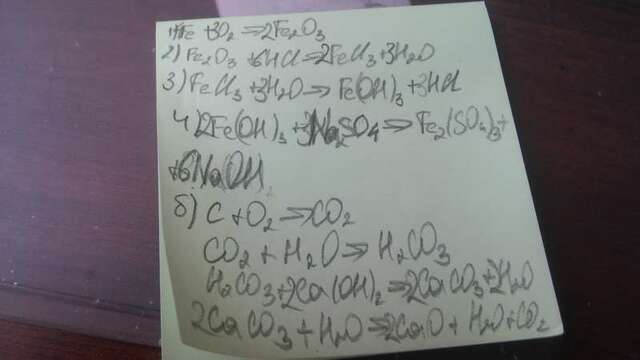 1) 4Fe + 3O2 ⇒ 2Fe2O3
2) Fe2O3 + 6HCl = 2FeCl3 + 3H2O
3) FeCl3 + 3H2O ⇒ Fe(OH)3 + 3HCl
4) 2Fe(OH)3 + 3Na2SO4 ⇒ Fe2(SO4)3 +
+ 6NaOH
б) C + O2 ⇒ CO2
CO2 + H2O ⇒ H2CO3
H2CO3 + 2Ca(OH)2 ⇒ 2CaCO3 + 2H2O
2CaCO3 + H2O ⇒ 2CaO + H2O + CO2